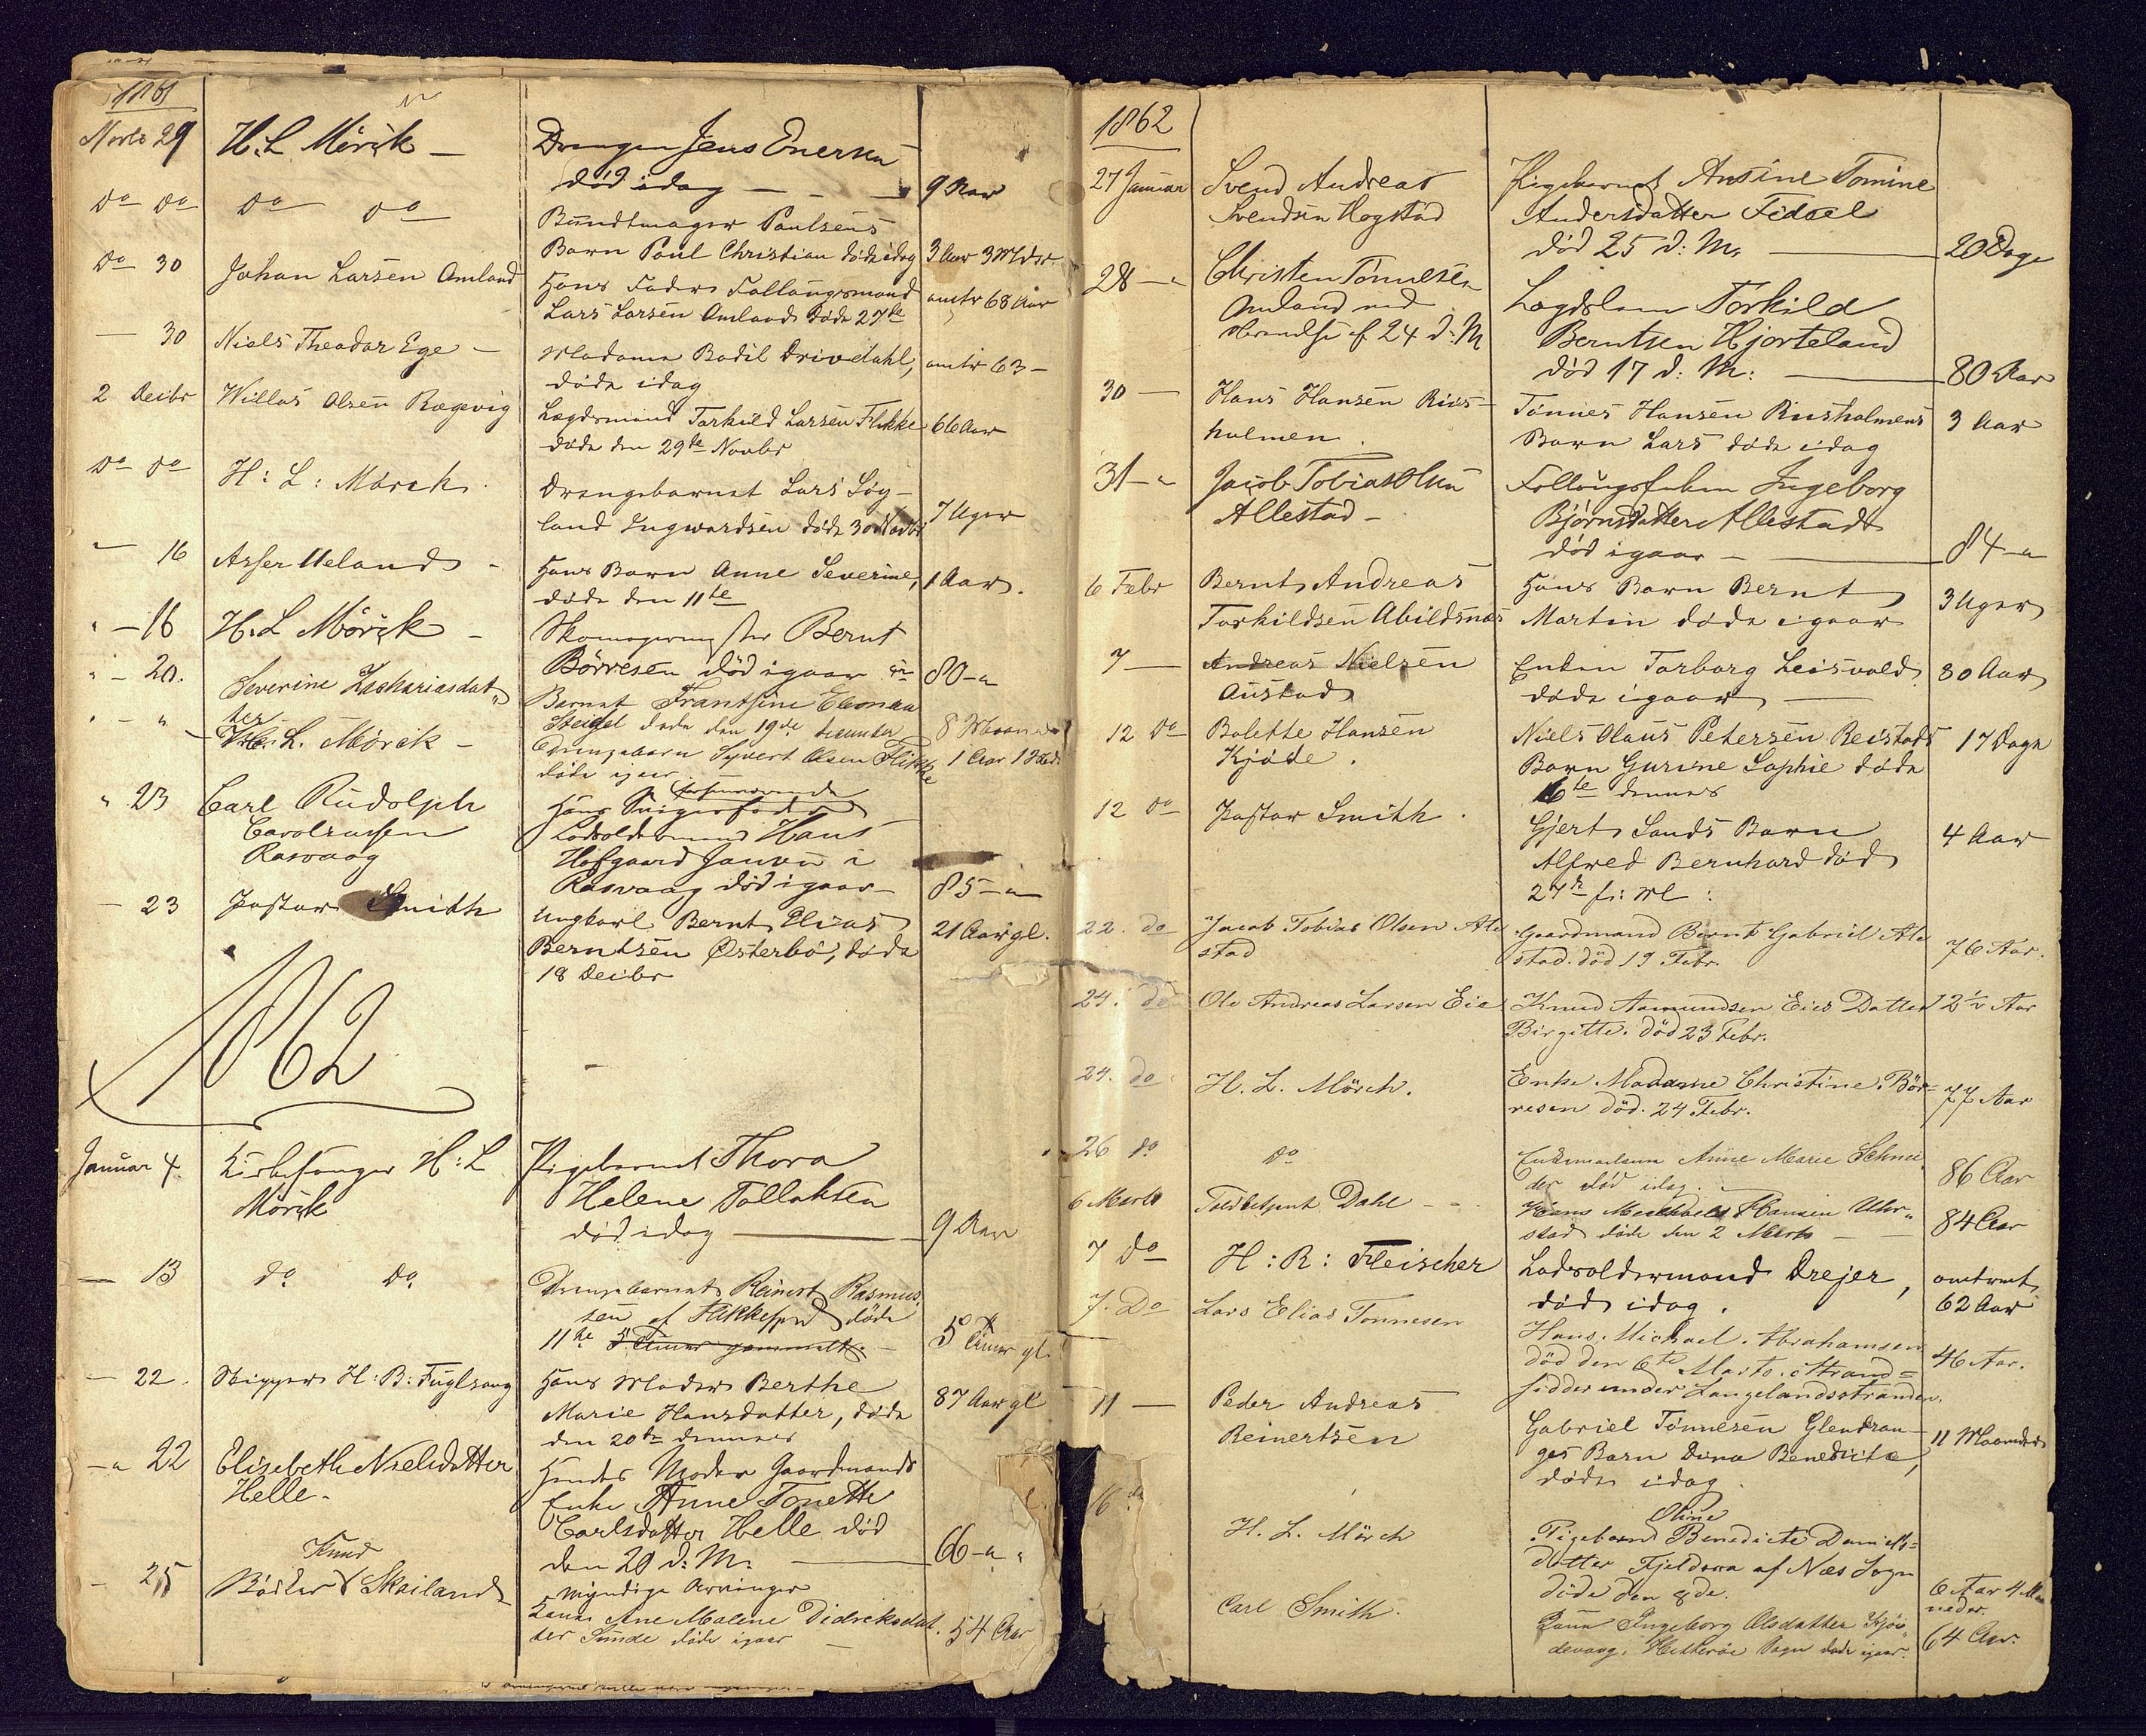 1861
29 H. L. Mörck — Drengen Jens Enersen
død idag — — 9 Aar
Do Do Do Do Bundtmager Paulsens
Barn Paul Christian døde idag 3 Aar 3 Mdr.
Do 30 Johan Larsen Omland Hans Fader Follaugsmand
Lars Larsen Omland døde 27de omtr 68 Aar
— 30 Niels Theodor Ege — Madame Bodil Drivdahl,
døde idag omtr 63 —
2 Decbr Willas Olsen Rægevig Lægdsmand Torkild Larsen Flikke 66 Aar
døde den 29de Novbr
Do Do H: L: Mørch. Drengebarnet Lars Løg-
land Ingwardsen døde 30 Novbr 7 Uger
— 16 Asser Ueland — Hans Barn Anne Severine, 1 Aar.
døde den 11te
" — 16 H. L Mörck — Bernt
Börresen død igaar 80 — "
" — 20. Severine Zachariasdat-
ter Barnet Frantsine Elonea
døde den 19de december 8 Maaneder
" — " H. L. Mörck — Drengebarn Syvert Olsen Flikke 1 Aar
døde igaar
" 23 Carl Rudolph
Carolzussen
Rasvaag
Hans Svigerfader forhenværende
Lodsoldermand Hans
Hofgaard Jansen i
Rasvaag død igaar — 85 — "
— 23 Pastor Smith Ungkarl Bernt Elias
Berntsen Østerbö, døde
18 Decbr 21 Aar gl.
1862
Januar 4. Kirkesanger H: L
Mörck
Pigebarnet Thora
Helene Tollaksen
død idag — 9 Aar
— 13 do. Do. Drengebarnet Reinert Rasmus-
sen af Flikkefjord døde
11te 5 Aar gl.
— 22. Skipper H: B: Fuglevaag Hans Moder Berthe
Marie Hansdatter, døde
den 20de dennes 87 Aar gl
— " 22 Elisebeth Nielsdatter
Helle.
Hendes Moder Gaardmands
Enke Anne Tonette
Carlsdatter Helle død
den 20 d: M. — 66 — "
— 25 Bödker Knud Skailand
myndige Arvinger
Ane Malene Didriksdat-
ter Sunde døde igaar — 54 Aar
1862
27 Januar Svend Andreas
Svendsen Hogstad
Pigebarnet Ansine Tomine
Andersdatter Fidsel
død 25 d: M. — 20 Dage
28 — " Christen Tönnesen
Omland med
af 24 d. M
Lægdslem Torkild
Berntsen Hjorteland
død 17 d: M: — 80 Aar
30 — Hans Hansen Riis-
holmen.
Tönnes Hansen Riisholmens
Barn Lars døde idag 3 Aar
31 — " Jacob Tobias Olsen
Allestad —
Follaugsfolken Ingeborg
Bjørnsdatter Allestad
død igaar — 84 — "
6 Febr Bernt Andreas
Torkildsen Abildsnæs
Hans Barn Bernt
Martin døde igaar 3 Uger
7 — Andreas Nielsen
Austad
Enken Torborg Leisvold
døde igaar — 80 Aar
12 Do Bolette Hansen
Kjøde.
Niels Olaus Petersen Reistads
Barn Gurine Sophie døde
6te dennes 17 Dage
12 do Pastor Smith. Gjert Lands Barn
Alfred Bernhard død
27de f: M: 4 Aar
22. do Jacob Tobias Olsen Ale
stad
Gaardmand Bernt Gabriel Ale
stad. död 19 Febr. 76 Aar.
24. do Ole Andreas Larsen Eie Knud Aamundsen Eies Datter
Birgitte. död 23 Febr. 12 ½ Aar
24. do H. L. Mörch. Enke Madame Christine Bör-
resen död. 24 Febr. 77 Aar
26 do do Anne Marie Schnei-
der död idag. — 86 Aar
6 Marts Toldbetjent Dahl — — Hans Michael Hansen Uhr-
stad døde den 2 Marts — 84 Aar
7 do H: R: Fleischer Lodsoldermand Drejer,
døde idag. omtrent
62 Aar
7. Do Lars Elias Tonnesen Hans. Michael. Abrahamsen
død den 6te Marts. Strand=
sidder under Langelandsstranden. 46 Aar.
11 — Peder Andreas
Reinertsen
Gabriel Tønnesen Glendran-
ges Barn Dina Benedicte,
døde idag 11 Maaneder
16 do H. L. Mörch Oline
Pigebarn Benedicte Daniels=
datter Fjeldsaa af Næs Sogn
døde den 8de. 6 Aar 4 Maa
neder.
Carl Smith. Ingeborg Olsdatter Kjör-
devaag, Hitterøe Sogn døde igaar. 64 Aar.